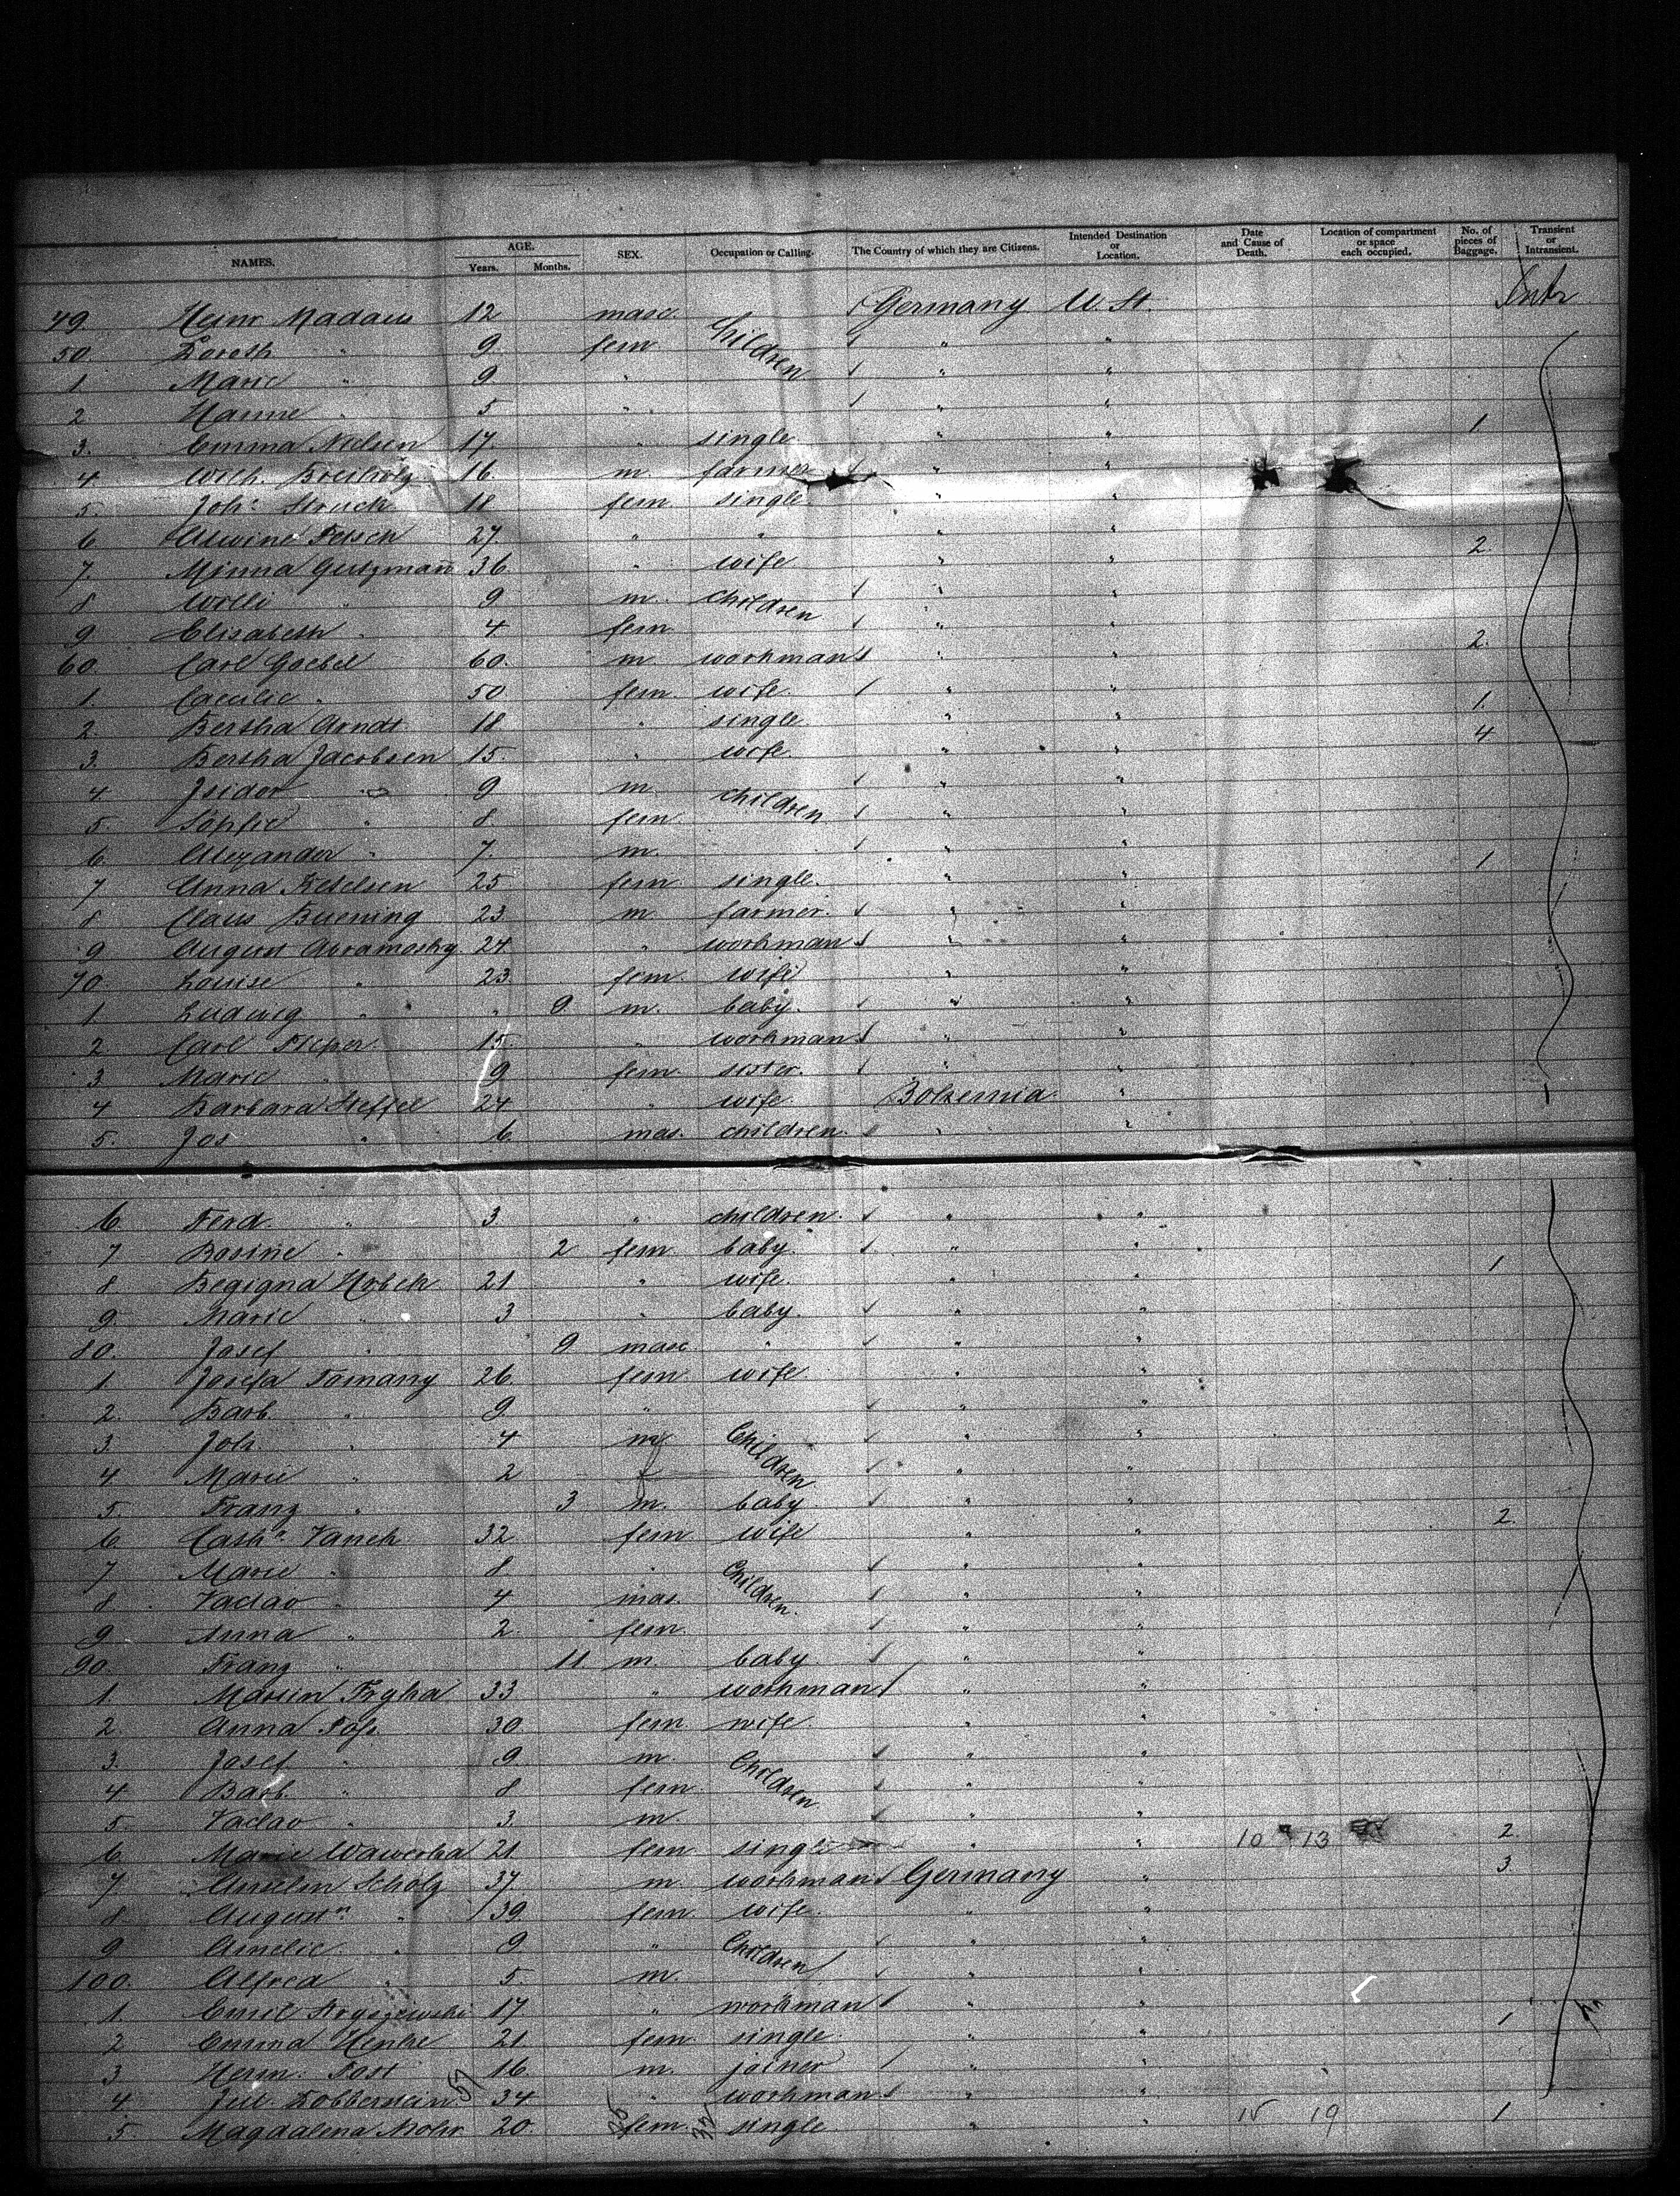 NAMES. AGE. Years. Months. SEX. Occupation or Calling. The Country of which they are Citizens. Intended Destination or Location. Date and Cause of Death. Location of compartment or space each occupied. No. of pieces of Baggage. Transient or Intransient.
49. Heinr Madaus 12 masc. Children Germany U. St.
50. Doroth " 9 fem " "
1. Marie " 9 " " "
2. Hanne " 5 " " "
3. Emma Nielsen 17 " single " " 1
4. Wilh. 16. m. farmer " "
5. Joh.a Struck 18 fem single " "
6. Alwine 27 " " " " 2.
7. Minna Gutzmañ 36 " wife " "
8 Willi " 9 m. children " "
9. Elisabeth " 4 fem " "
60. Carl Goebel 60. m workman " " 2.
1. Caecilie " 50 fem. wife " "
2. Bertha Arndt 18 " single " " 1.
3. Bertha Jacobsen 15. " wife. " " 4
4. Isidor " 9 m children " "
5. Sophie " 8 fem " "
6. Alexander " 7. m. " "
7 Anna Ketelsen 25 fem single. " " 1
8 Claus Buening 23. m farmer. " "
9 August Abramosky 24 " workman " "
70. Louise " 23. fem. wife " "
1. Ludwig " " 9 m. baby. " "
2. Carl 15. " workman " "
3 Marie " 9 fem. sister. " "
4 Barbara Steffel 24 " wife Bohemia. "
5. Jos " 6 mas. children. " "
6 Ferd. " 3 " children. " "
7 Rosine " 2 fem baby. " "
8. Hrbek 21 " wife. " " 1
9. Marie " 3 " baby. " "
80. Josef " 9 masc " " "
1. Josefa Tomany 26 fem wife " "
2. Barb. " 9 " Children " "
3. Joh. " 4 m " "
4 Marie " 2 f " "
5. Franz " 3 m. baby. " "
6. Cath.a Vanek 32 fem wife " " 2.
7 Marie " 8. " Children. " "
8. Vaclav " 4 mas. " "
9 Anna " 2. fem. " "
90. Franz " 11 m. baby. " "
1. Martin 33 " workman " "
2. Anna 30 fem wife. " "
3. Josef " 9. m. Children " "
4 Barb. " 8 fem. " "
5. Vaclav " 3. m. " "
6. Marie Wawerka 21 fem. single " " 10 13 2.
7 Anselm Scholz 37 m workman Germany " 3.
8. August.n " 39. fem. wife. " "
9 Amelie " 9. " Children " "
100. Alfred " 5. m. " "
1. Emil 17. " workman " "
2 Emma Henke 21. fem. single. " " 1
3 Herm. Fost 16 m. joiner " "
4. Jul. Dobberstein 34 " workman " "
5 Magdalena Mohr 20. fem. single " " 15 19 1